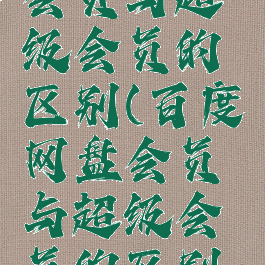 会员与超
级会员的
区别(百度
网盘会员
与超级会
员的区别